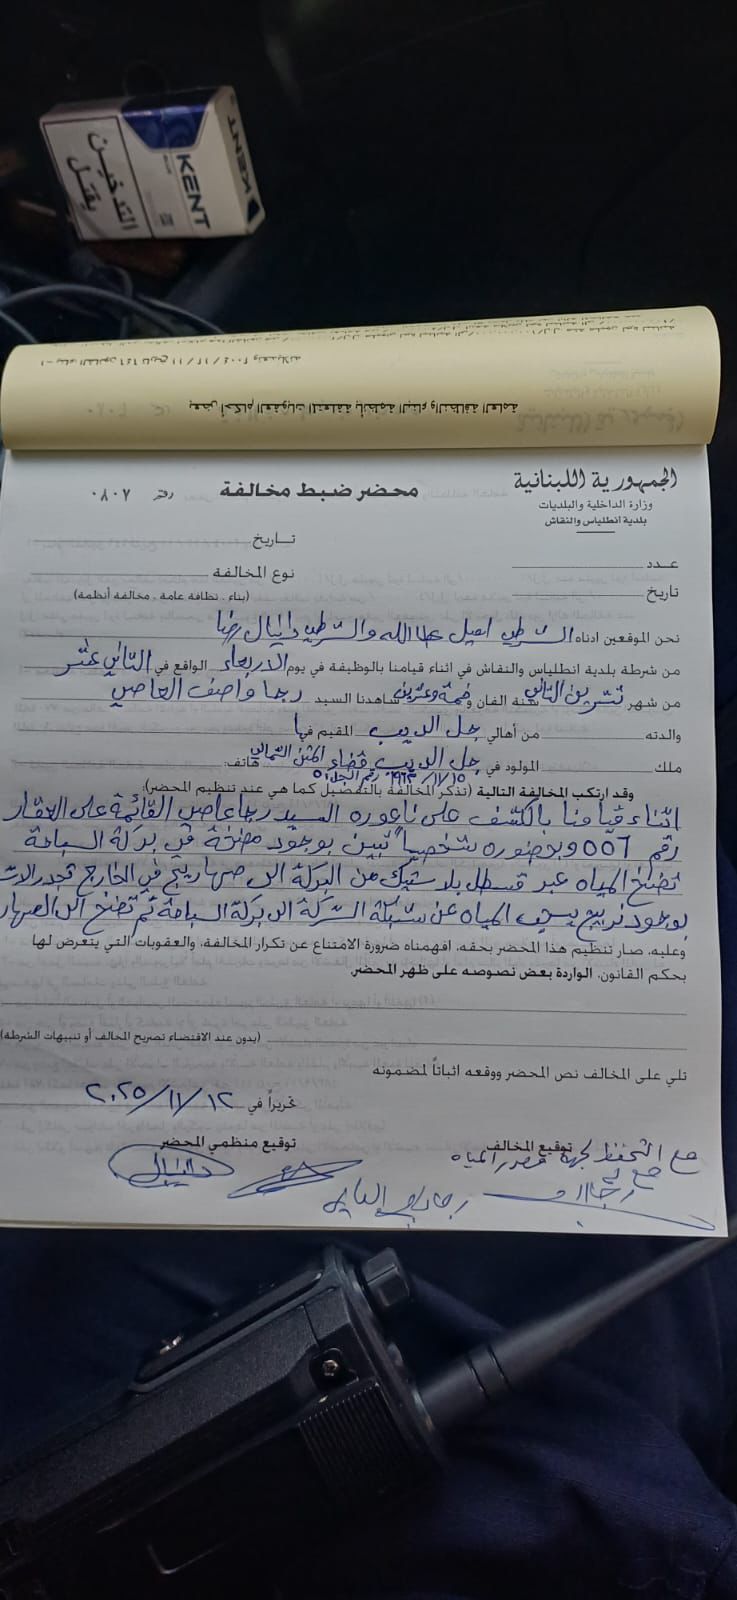 KENT
KENT
التدخين
يقتل
بعض أحكام العقوبات المتعلقة بأنظمة البناء والنظافة العامة
الجمهورية اللبنانية
وزارة الداخلية والبلديات
بلدية انطلياس والنقاش
محضر ضبط مخالفة رقم ٠٨٠٧
عدد
تاريخ
تاريخ
نوع المخالفة
(بناء، نظافة عامة، مخالفة أنظمة)
نحن الموقعين ادناه الشرطي اميل عطاالله والشرطي دانيال رضا
من شرطة بلدية انطلياس والنقاش في اثناء قيامنا بالوظيفة في يوم الاربعاء الواقع في الثاني عشر
من شهر تشرين الثاني سنة الفان وخمسة وعشرين شاهدنا السيد رجا واصف العاصي
والدته من أهالي جل الديب المقيم فيها
ملك المولود في جل الديب قضاء المتن الشمالي هاتف:
١٥/١١/١٩٦٣ رقم السجل
وقد ارتكب المخالفة التالية (تذكر المخالفة بالتفصيل كما هي عند تنظيم المحضر):
اثناء قيامنا بالكشف على ناعوره السيد رجا عاصي القائمة على العقار
رقم ٥٥٦ وبحضوره شخصياً تبين بوجود مضخة في بركة السباحة
تضخ المياه عبر قسطل بلاستيك من البركة الى صهاريج في الخارج تجدر الاشـ
بوجود نربيج يسحب المياه عن شبكة الشركة الى بركة السباحة ثم تضخ الى الصهار
وعليه، صار تنظيم هذا المحضر بحقه، افهمناه ضرورة الامتناع عن تكرار المخالفة، والعقوبات التي يتعرض لها
بحكم القانون، الواردة بعض نصوصه على ظهر المحضر.
(يدون عند الاقتضاء تصريح المخالف أو تنبيهات الشرطة)
تلي على المخالف نص المحضر ووقعه اثباتاً لمضمونه
تحريراً في ٢٠٢٥/١١/١٢
توقيع المخالف
توقيع منظمي المحضر
مع التحفظ لجهة مصدر المياه
دانيال